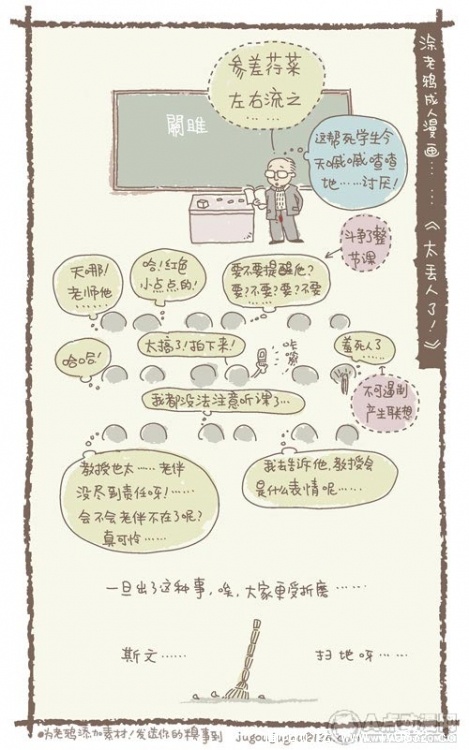 涂老鸦成人漫画……《太丢人了!》
参差荇菜
左右流之
……
關雎
这帮死学生今
天嘁嘁喳喳
地……讨厌!
斗争了整
节课
天哪!
老师他
哈!红色
小点点的!
要不要提醒他?
要?不要?要?不要
哈哈!
太搞了!拍下来!
咔嚓
羞死人了
……
不可遏制
产生联想
我都没法注意听课了…
教授也太……老伴
没尽到责任呀!……
会不会老伴不在了呢?
真可怜……
我去告诉他,教授会
是什么表情呢……
一旦出了这种事,唉,大家更受折磨……
斯文……
扫地呀……
为老鸦添加素材!发送你的糗事到